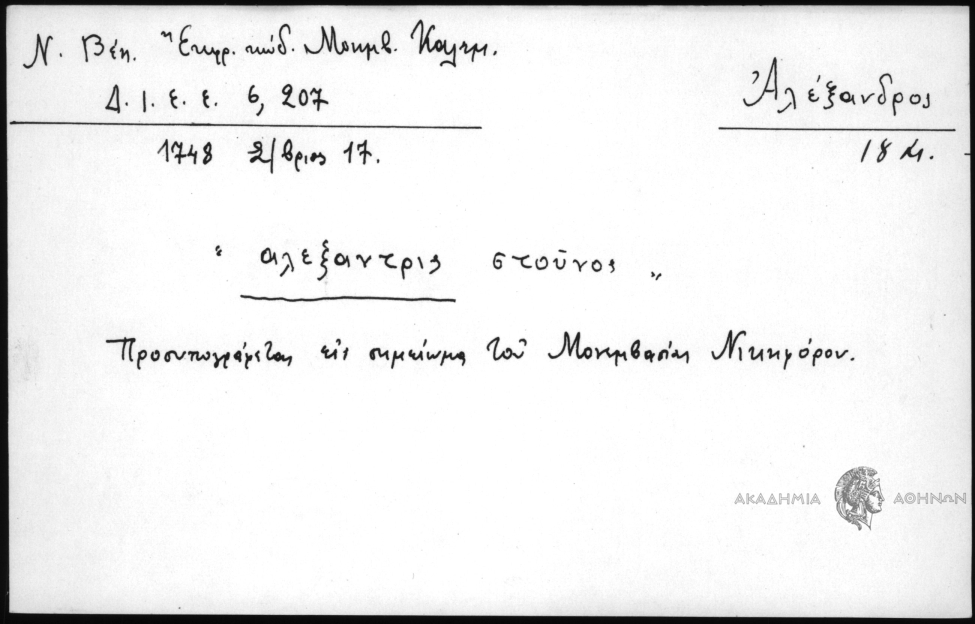 Ν. Βέη. Ἔκφρ. κώδ. Μονεμβ. Καλαμ.
Δ. Ι. Ε. Ε. 6, 207
Ἀλέξανδρος
18 αι.
1748 2/βριος 17.
“ αλεξαντρις στοῦνος „
Προσυπογράφεται εἰς σημείωμα τοῦ Μονεμβασίας Νικηφόρου.
ΑΚΑΔΗΜΙΑ ΑΘΗΝΩΝ